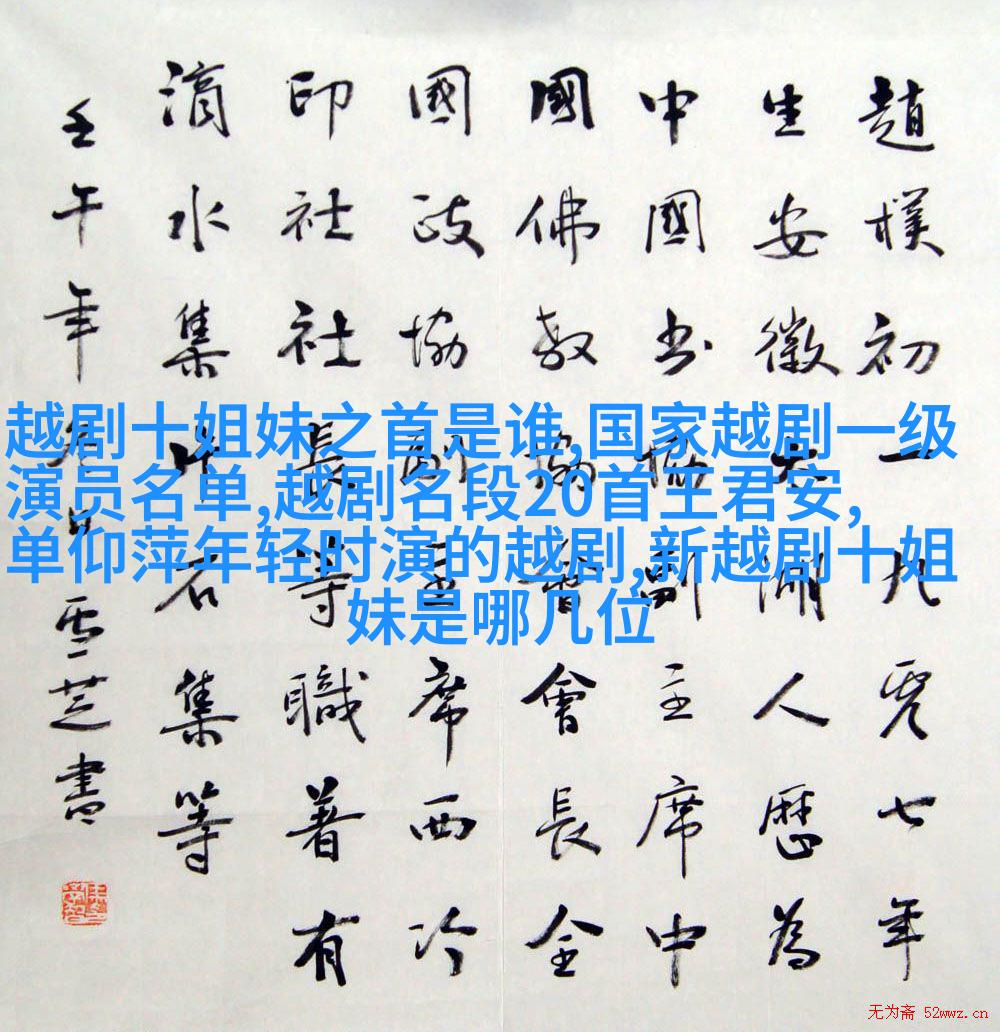 趙樸初一九零七年
生安徽太湖人歷為
中國书協副主席中
國佛教協會會長全
國政協副主席西冷
印社社長等職著有
滴水集片石集等
壬午年冬月雪芝書
越剧十姐妹之首是谁,国家越剧一级
演员名单,越剧名段20首王君安,
单仰萍年轻时演的越剧,新越剧十姐
妹是哪几位
无为斋 52wwz.cn